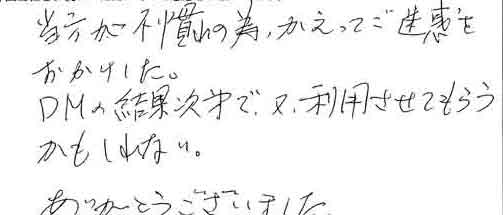 当方が不慣れの為,かえってご迷惑を
おかけした。
DMの結果次第で、又、利用させてもらう
かもしれない。
ありがとうございました